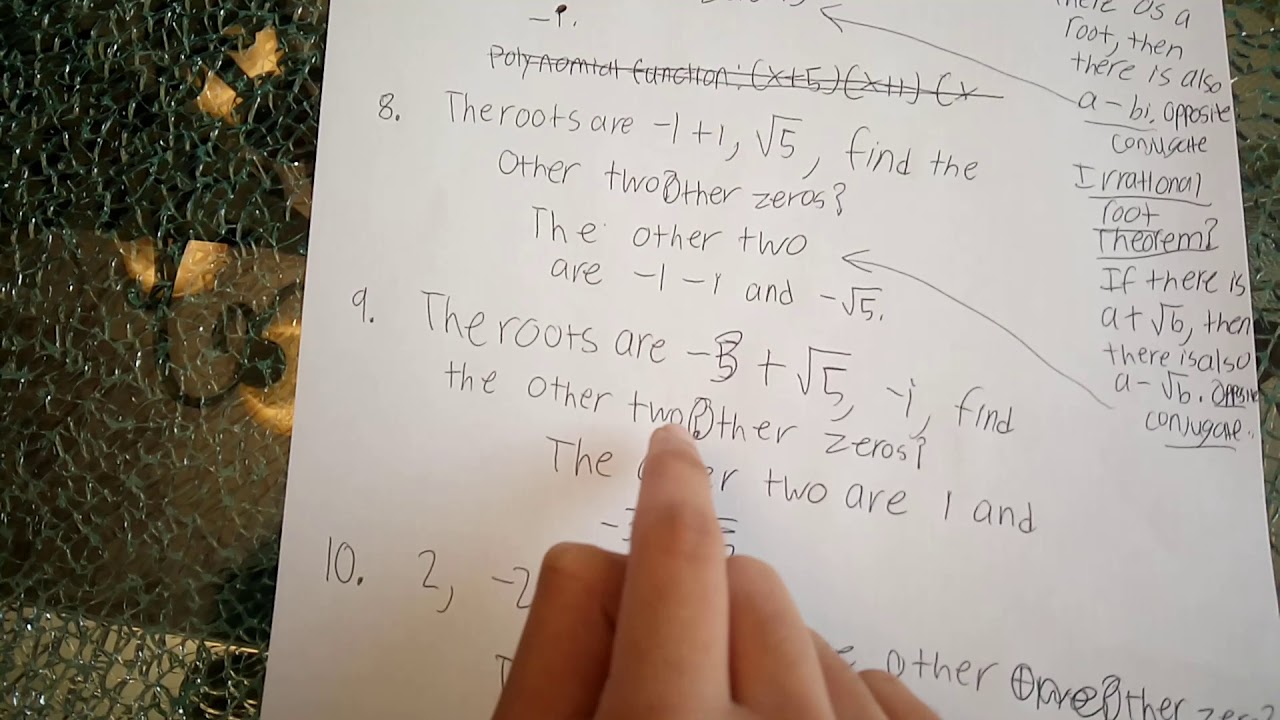 -i.
Polynomial function: (x+5)(x+1)(x
8. The roots are -1+i, √5, find the
other two other zeros?
The other two
are -1-i and -√5.
9. The roots are -3 + √5, -i, find
the other two other zeros?
The two are i and
10. 2, -2
other other
root, then
there is also
a-bi. opposite
conjugate
Irrational
root
Theorem?
If there is
a+√b, then
there is also
a-√b. Opposite
conjugate.